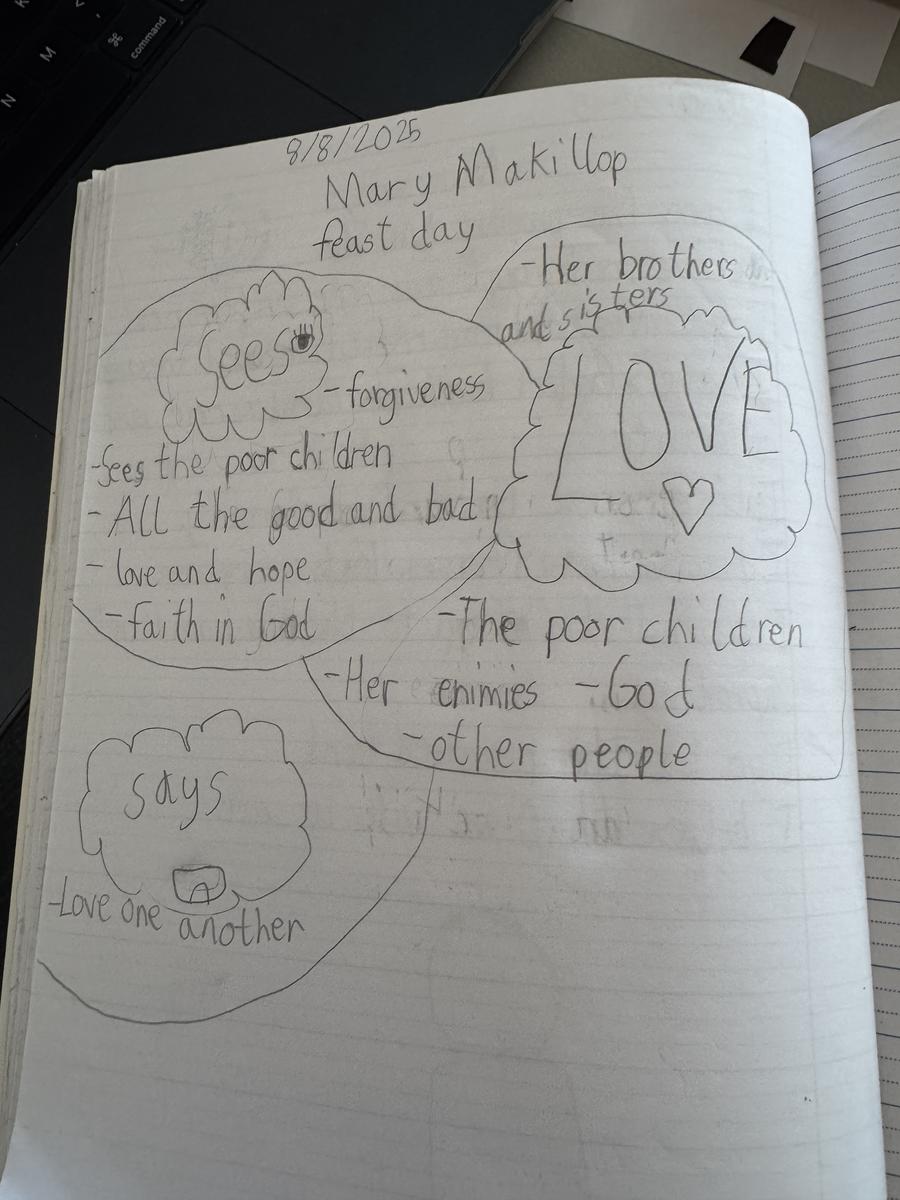 8/8/2025
Mary Makillop
feast day
Sees
- forgiveness
- Sees the poor children
- All the good and bad
- love and hope
- faith in God
- Her brothers
and sisters
LOVE
- The poor children
- Her enimies - God
- other people
says
- Love one another
N
M
⌘
command